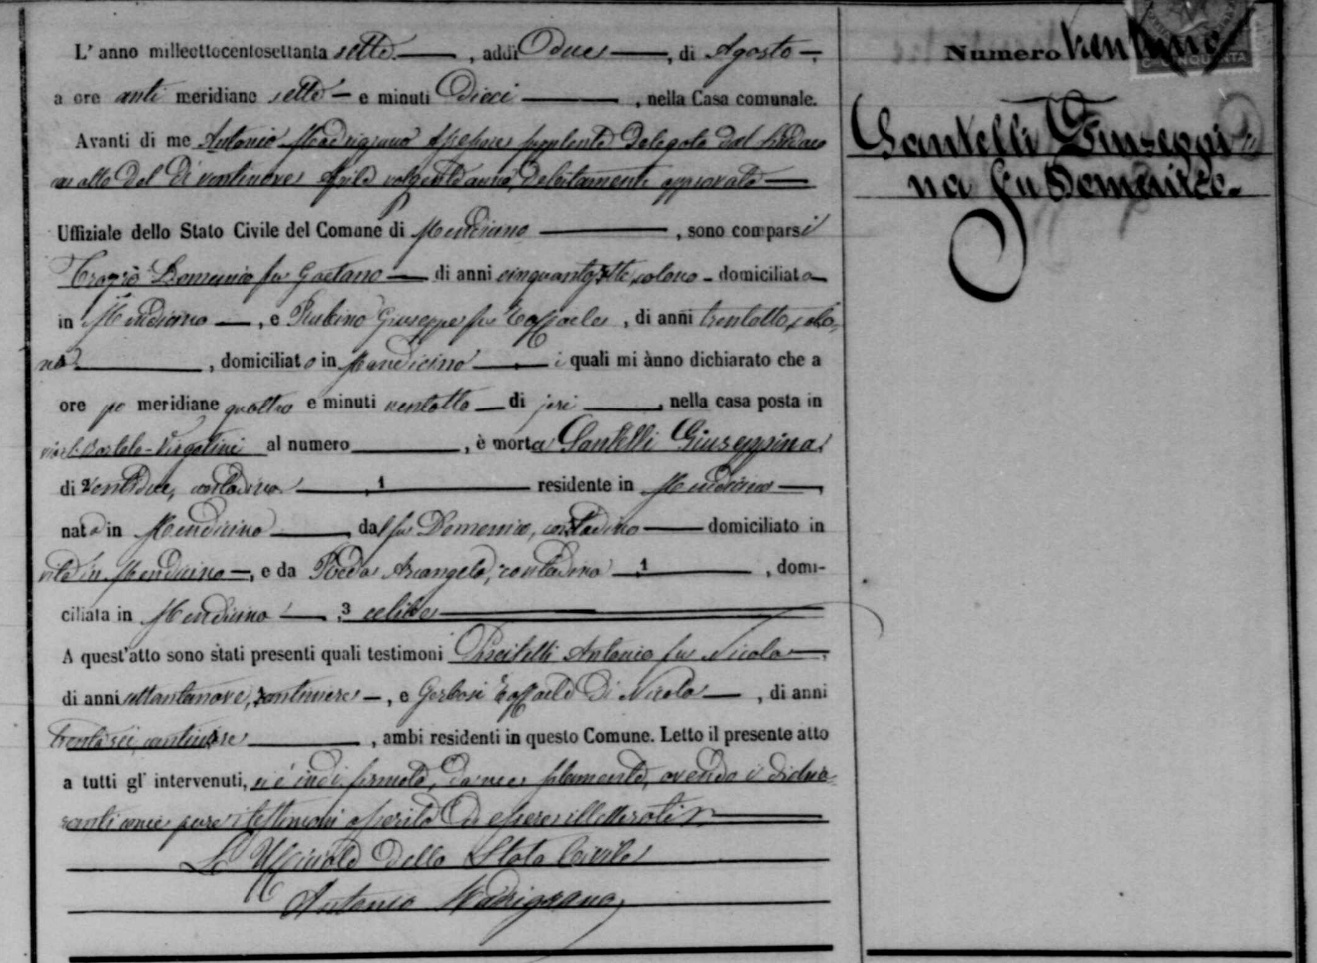 L'anno milleottocentosettanta sette, addì due, di Agosto,
a ore anti meridiane sette e minuti dieci, nella Casa comunale.
Avanti di me Antonio Madrigrano Assessore supplente delegato dal Sindaco
con atto del dì ventinove Aprile volgente anno, debitamente approvato
Uffiziale dello Stato Civile del Comune di Mendicino, sono comparsi
Domenico fu Gaetano di anni cinquantasette, colono domiciliato
in Mendicino, e Rubino Giuseppe fu Raffaele, di anni trentotto, colo-
no, domiciliato in Mendicino i quali mi ànno dichiarato che a
ore po meridiane quattro e minuti ventotto di jeri, nella casa posta in
al numero, è morta Santelli Giuseppina
di ventidue, contadina 1 residente in Mendicino,
nata in Mendicino, dal fu Domenico, contadino domiciliato in
vita in Mendicino, e da Reda Arcangela, contadina 1, domi-
ciliata in Mendicino, 3 celibe
A quest'atto sono stati presenti quali testimoni Piscitelli Antonio fu Nicola,
di anni settantanove, cantiniere, e Gerbasi Raffaele di Nicola, di anni
trentasei, cantiniere, ambi residenti in questo Comune. Letto il presente atto
a tutti gl' intervenuti, si è indi firmato, da me solamente, avendo i dichia-
ranti come pure i testimoni asserito di essere illetterati
L'Uffiziale dello Stato Civile
Antonio Madrigrano
Numero trentuno
Santelli Giuseppi
na fu Domenico.